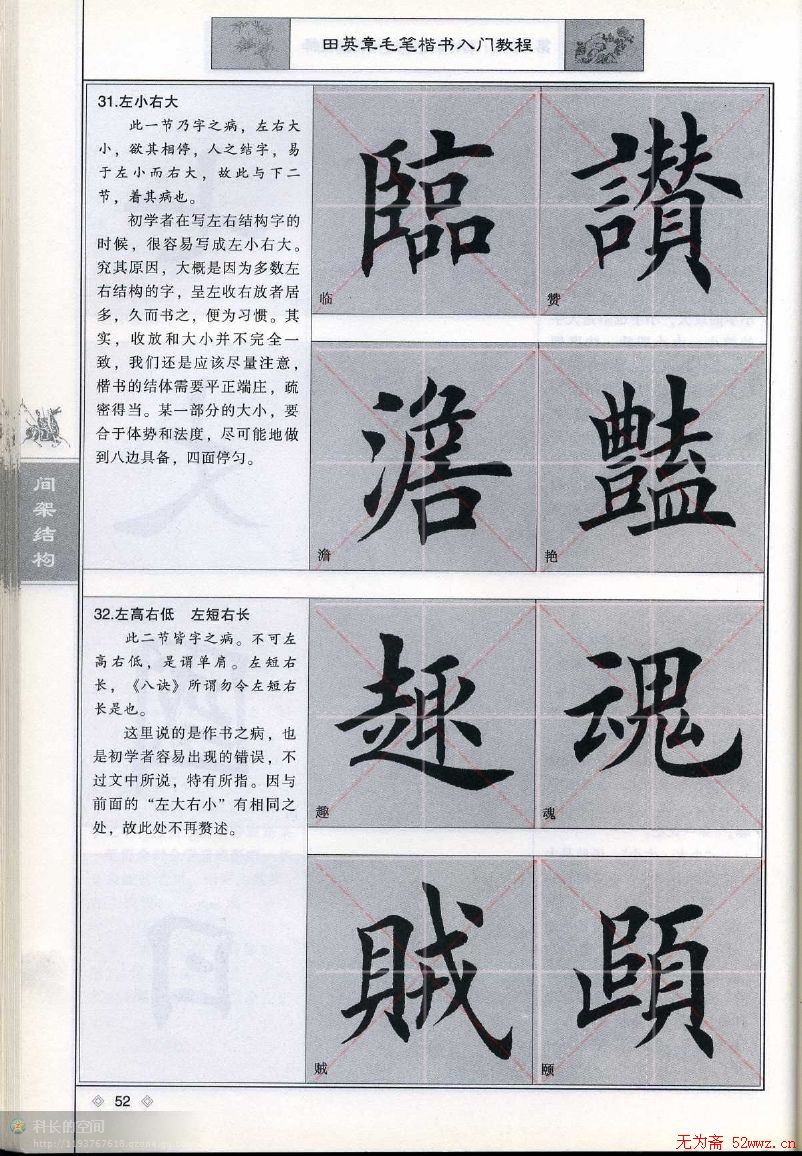 田英章毛笔楷书入门教程
31.左小右大
此一节乃字之病，左右大
小，欲其相停，人之结字，易
于左小而右大，故此与下二
节，着其病也。
初学者在写左右结构字的
时候，很容易写成左小右大。
究其原因，大概是因为多数左
右结构的字，呈左收右放者居
多，久而书之，便为习惯。其
实，收放和大小并不完全一
致，我们还是应该尽量注意，
楷书的结体需要平正端庄，疏
密得当。某一部分的大小，要
合于体势和法度，尽可能地做
到八边具备，四面停匀。
臨
临
讃
赞
澹
澹
豔
艳
间架结构
32.左高右低 左短右长
此二节皆字之病。不可左
高右低，是谓单肩。左短右
长，《八诀》所谓勿令左短右
长是也。
这里说的是作书之病，也
是初学者容易出现的错误，不
过文中所说，特有所指。因与
前面的“左大右小”有相同之
处，故此处不再赘述。
趣
趣
魂
魂
賊
贼
頤
颐
52
科长的空间
无为斋 52wwz.cn